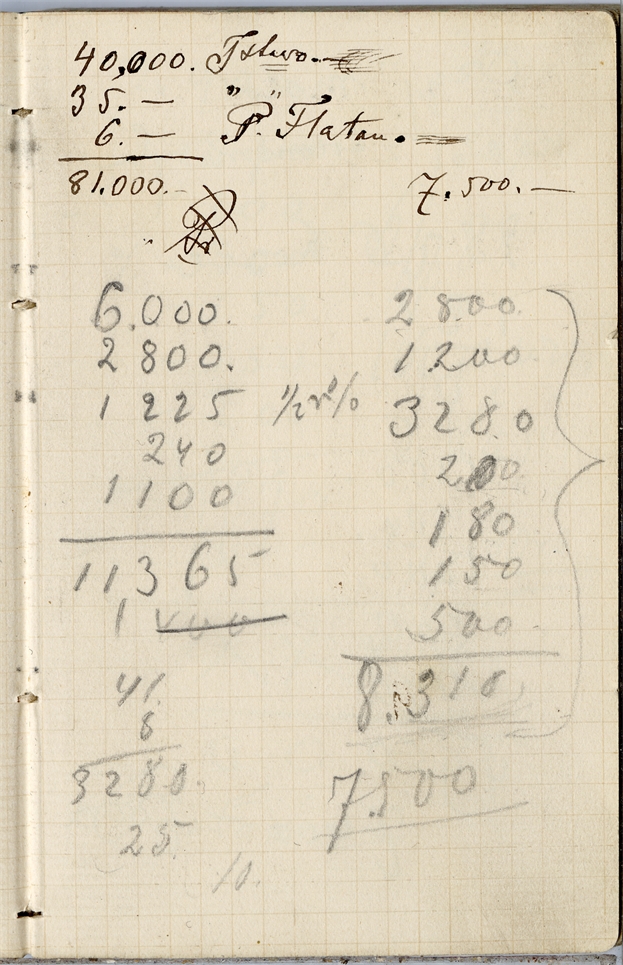 40,000. Tstwo.
35. — " "
6. — P. Flatau.
81.000.— 7.500.—
6.000.
2800.
1225 1/2 r %
240
1100
11,365
1
2800
1200
3280
200
180
150
500
8.310
7500
41.
8
3280.
25.
10.